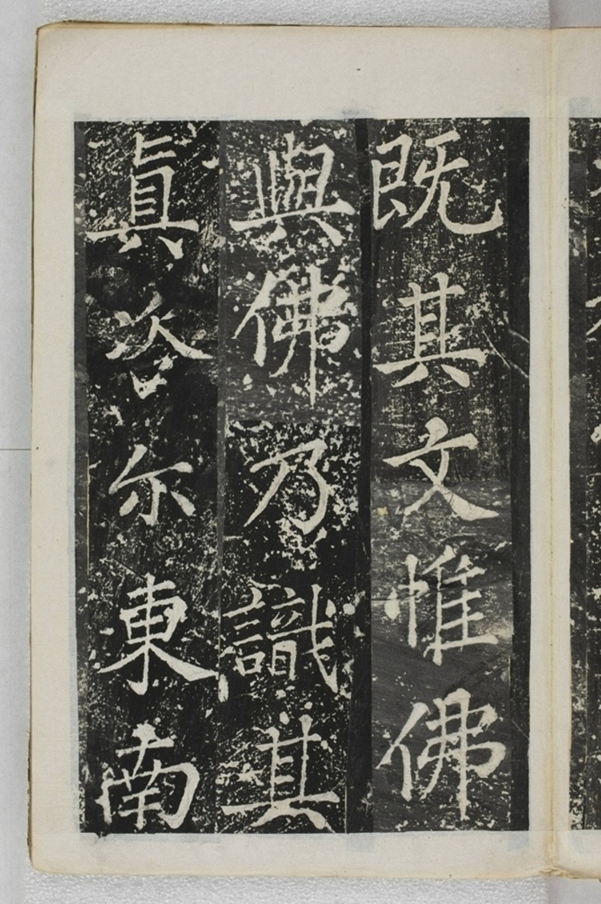 既其文惟佛
與佛乃識其
真咨尓東南